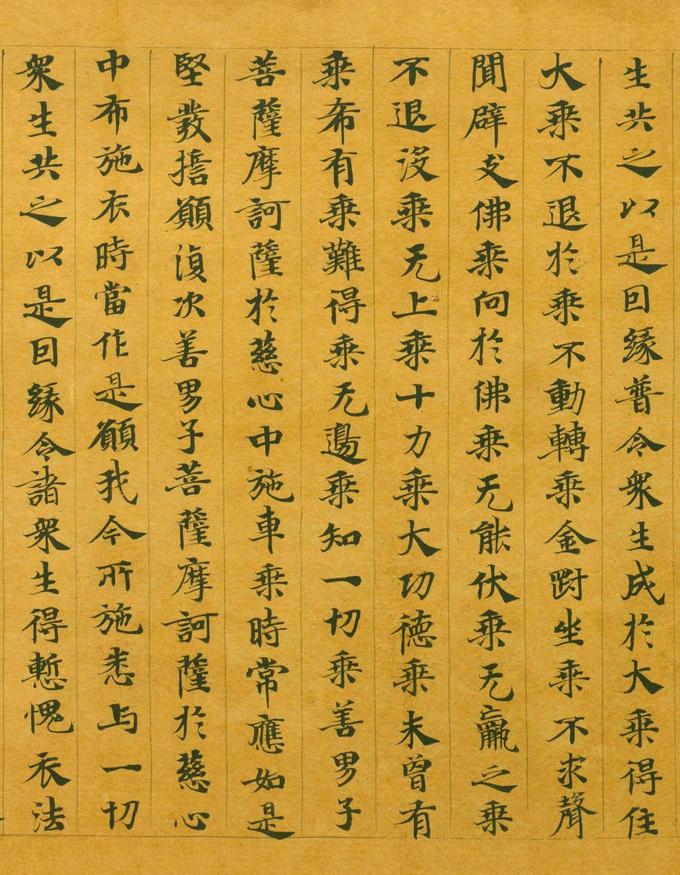 生共之以是回緣普令衆生成於大乘得住
大乘不退於乘不動轉乘金對坐乘不求聲
聞辟支佛乘向於佛乘无能伏乘无羸之乘
不退沒乘无上乘十力乘大功德乘未曾有
乘希有乘難得乘无邊乘知一切乘善男子
菩薩摩訶薩於慈心中施車乘時常應如是
堅發擔願復次善男子菩薩摩訶薩於慈心
中布施衣時當作是願我今所施悉与一切
衆生共之以是回緣令諸衆生得慙愧衣法